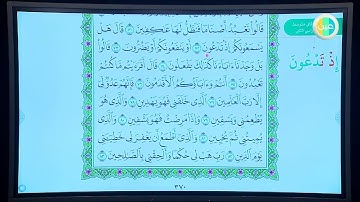 قَالُوا۟ نَعْبُدُ أَصْنَامًا فَنَظَلُّ لَهَا عَـٰكِفِينَ ٧١ قَالَ هَلْ
يَسْمَعُونَكُمْ إِذْ تَدْعُونَ ٧٢ أَوْ يَنفَعُونَكُمْ أَوْ يَضُرُّونَ ٧٣ قَالُوا۟
بَلْ وَجَدْنَآ ءَابَآءَنَا كَذَٰلِكَ يَفْعَلُونَ ٧٤ قَالَ أَفَرَءَيْتُم مَّا كُنتُمْ
تَعْبُدُونَ ٧٥ أَنتُمْ وَءَابَآؤُكُمُ ٱلْأَقْدَمُونَ ٧٦ فَإِنَّهُمْ عَدُوٌّ لِّىٓ
إِلَّا رَبَّ ٱلْعَـٰلَمِينَ ٧٧ ٱلَّذِى خَلَقَنِى فَهُوَ يَهْدِينِ ٧٨ وَٱلَّذِى هُوَ
يُطْعِمُنِى وَيَسْقِينِ ٧٩ وَإِذَا مَرِضْتُ فَهُوَ يَشْفِينِ ٨٠ وَٱلَّذِى
يُمِيتُنِى ثُمَّ يُحْيِينِ ٨١ وَٱلَّذِىٓ أَطْمَعُ أَن يَغْفِرَ لِى خَطِيٓـَٔتِى
يَوْمَ ٱلدِّينِ ٨٢ رَبِّ هَبْ لِى حُكْمًا وَأَلْحِقْنِى بِٱلصَّـٰلِحِينَ ٨٣
٣٧٠
إِذْ تَدْعُونَ